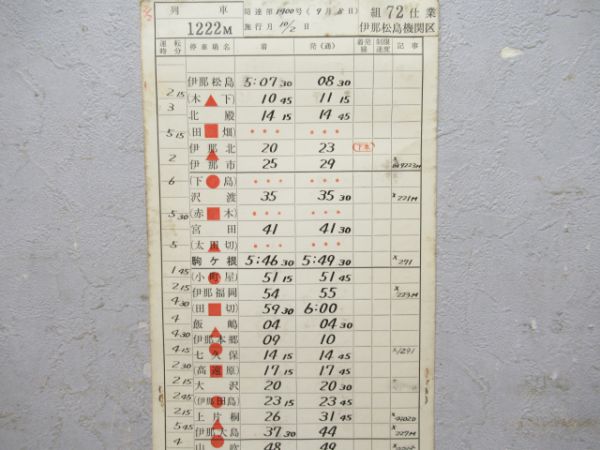 列 車 局達第1900号(9月8日) 組72仕業
1222M 施行月10/2日 伊那松島機関区
運転時分 停車場名 着 発(通) 着発線 制限速度 記事
伊那松島 5:07 30 08 30
2 15
(木下) 10 45 11 15
3
北殿 14 15 14 45
(田畑) • • • • • •
5 15
伊那北 20 23 (下本)
2
伊那市 25 29 × 9223M
(下島) • • • • • •
6
沢渡 35 35 30 × 221M
(赤木) • • • • • •
5 30
宮田 41 41 30
(太田切) • • • • • •
5
駒ケ根 5:46 30 5:49 30 × 291
1 45
(小町屋) 51 15 51 45
2 15
伊那福岡 54 55 × 223M
4 30
(田切) 59 30 6:00
4
飯嶋 04 04 30
4 30
伊那本郷 09 10
4 15
七久保 14 15 14 45 ×1291
2 30
(高遠原) 17 15 17 45
2 15
大沢 20 20 30
2 45
(伊那田島) 23 15 23 45
2 15
上片桐 26 31 45
5 45
伊那大島 37 30 44 × 227M
4
山吹 48 49